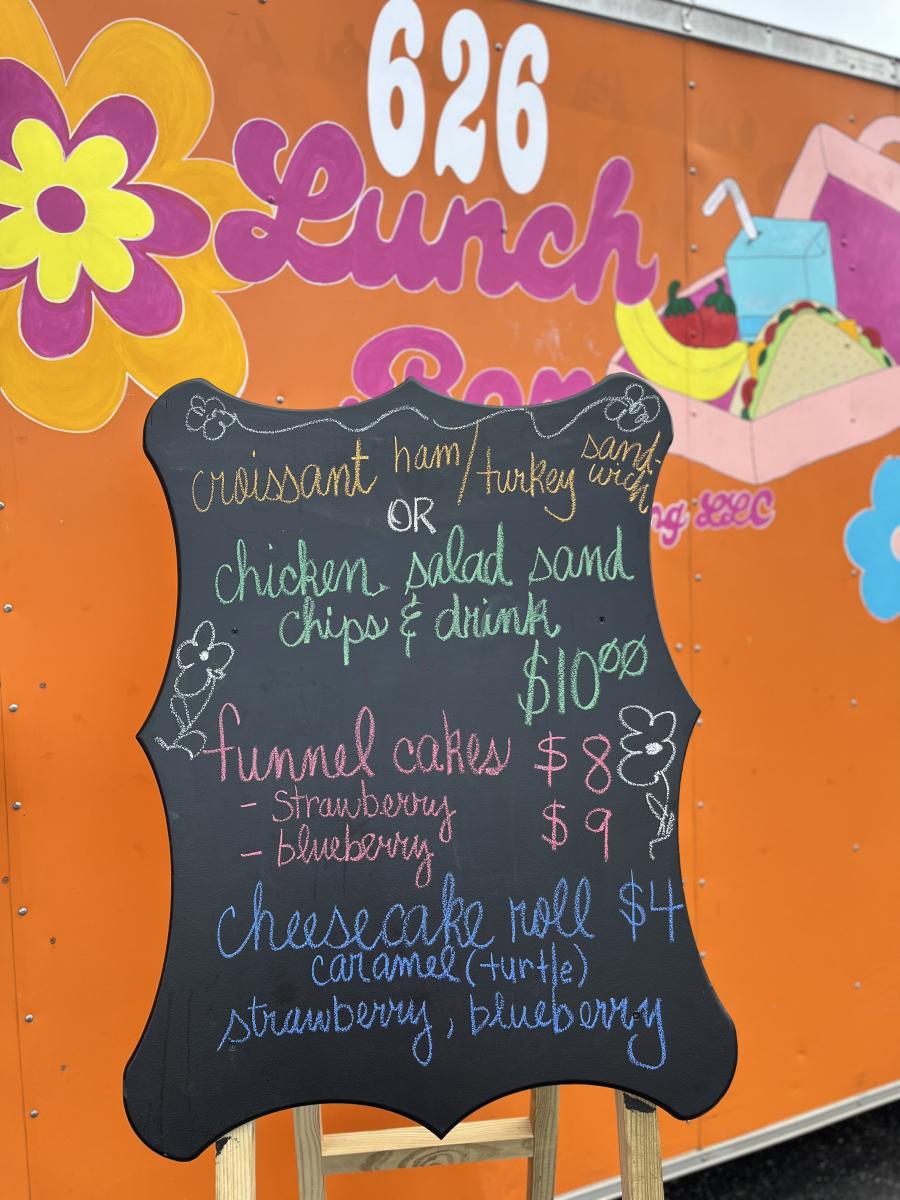 626
Lunch
croissant ham/turkey sand-
wich
OR
chicken salad sand
chips & drink
$10.00
funnel cakes $8
- strawberry $9
- blueberry
cheesecake roll $4
caramel (turtle)
strawberry, blueberry
LLC